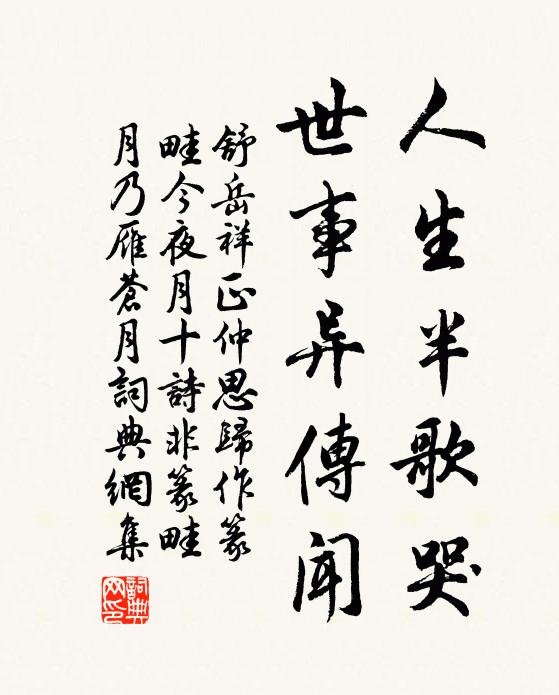 人生半歌哭
世事异傳聞
舒岳祥正仲思歸作篆
畦今夜月十詩非篆畦
月乃雁蒼月詞典網集
詞典
网印